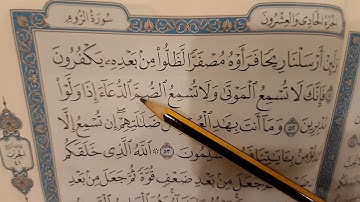 الجزء الحادي والعشرون سورة الروم
ولئن أرسلنا ريحا فرأوه مصفرا لظلوا من بعده يكفرون
فإنك لا تسمع الموتى ولا تسمع الصم الدعاء إذا ولوا
مدبرين ٥٢ وما أنت بهاد العمي عن ضلالتهم إن تسمع إلا
يؤمن بآياتنا مسلمون ٥٣ الله الذي خلقكم
ثم جعل من بعد ضعف قوة ثم جعل من بعد